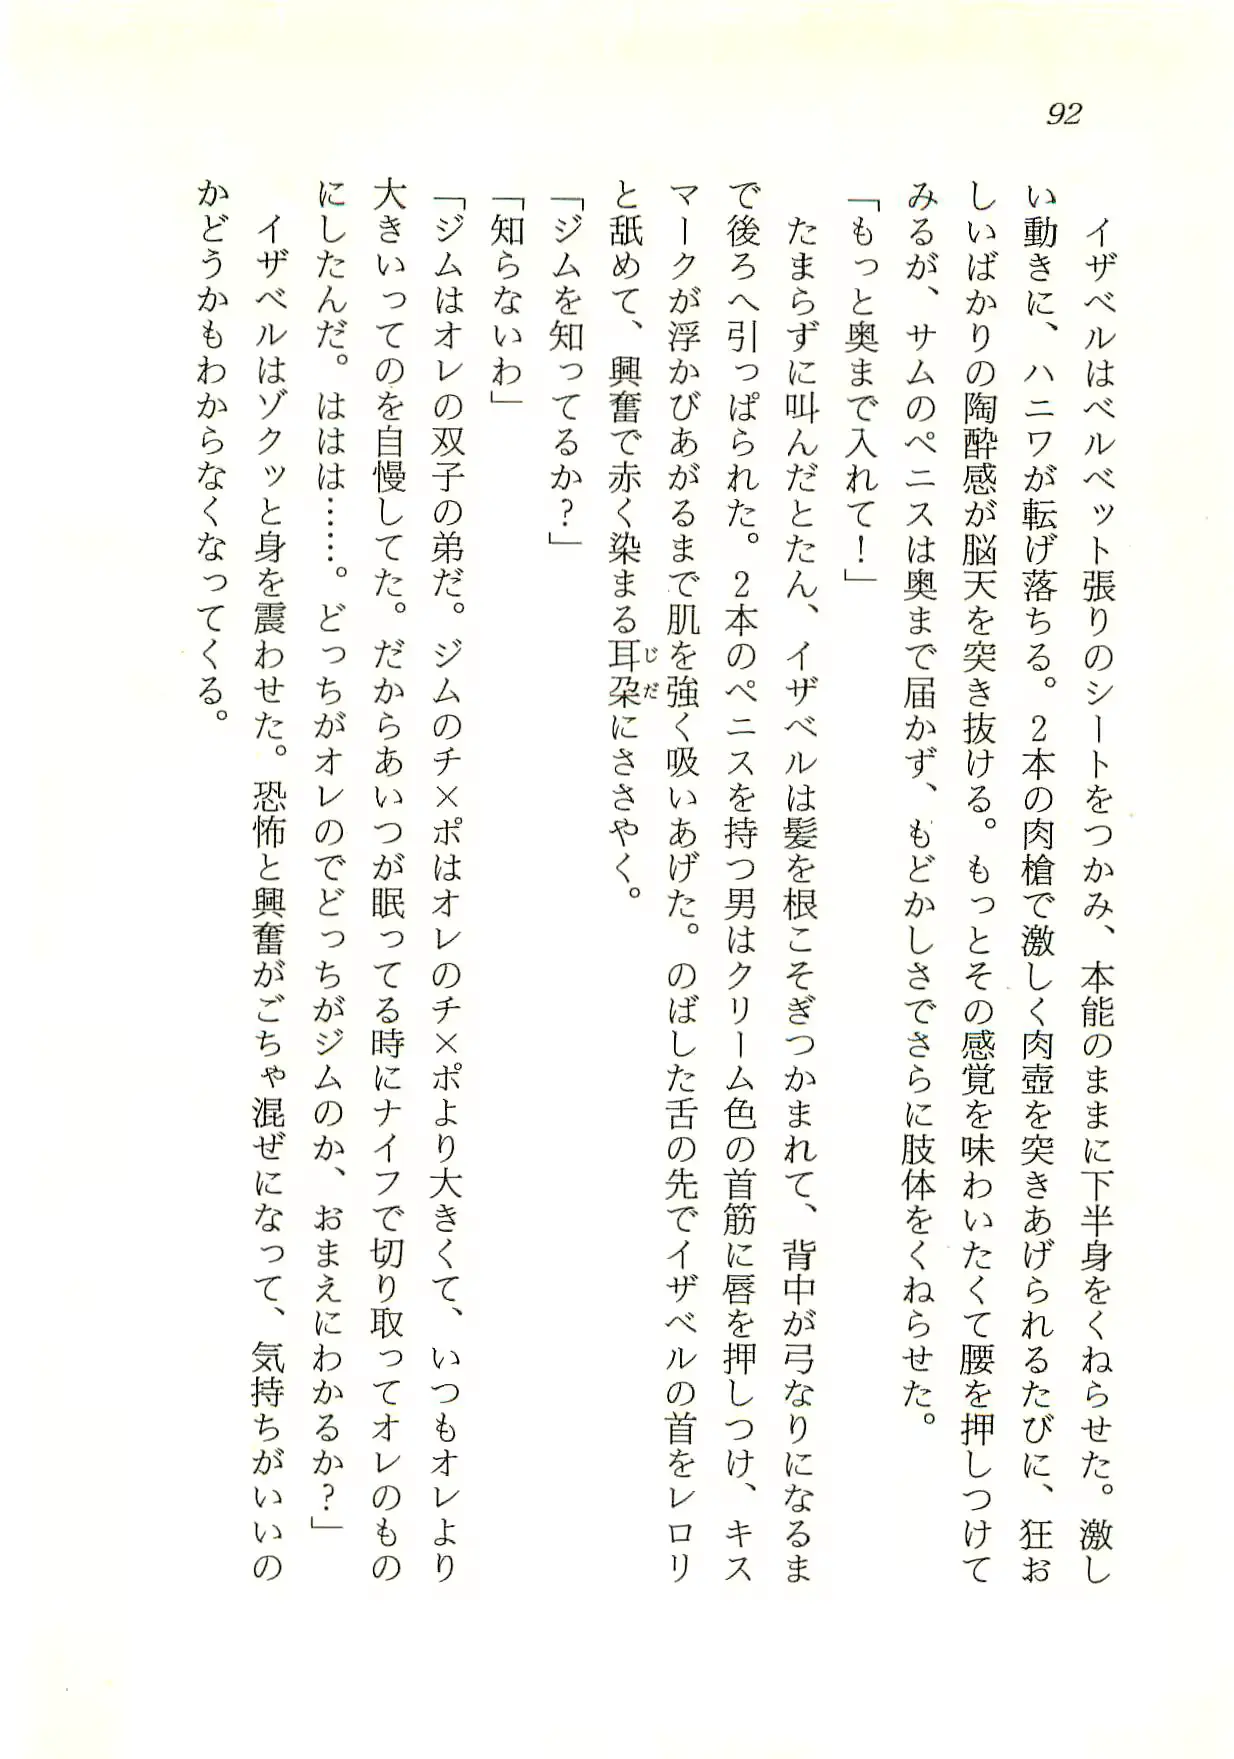 92
　イザベルはベルベット張りのシートをつかみ、本能のままに下半身をくねらせた。激し
い動きに、ハニワが転げ落ちる。2本の肉槍で激しく肉壺を突きあげられるたびに、狂お
しいばかりの陶酔感が脳天を突き抜ける。もっとその感覚を味わいたくて腰を押しつけて
みるが、サムのペニスは奥まで届かず、もどかしさでさらに肢体をくねらせた。
「もっと奥まで入れて！」
　たまらずに叫んだとたん、イザベルは髪を根こそぎつかまれて、背中が弓なりになるま
で後ろへ引っぱられた。2本のペニスを持つ男はクリーム色の首筋に唇を押しつけ、キス
マークが浮かびあがるまで肌を強く吸いあげた。のばした舌の先でイザベルの首をレロリ
と舐めて、興奮で赤く染まる耳朶じだにささやく。
「ジムを知ってるか？」
「知らないわ」
「ジムはオレの双子の弟だ。ジムのチ×ポはオレのチ×ポより大きくて、いつもオレより
大きいってのを自慢してた。だからあいつが眠ってる時にナイフで切り取ってオレのもの
にしたんだ。ははは……。どっちがオレのでどっちがジムのか、おまえにわかるか？」
　イザベルはゾクッと身を震わせた。恐怖と興奮がごちゃ混ぜになって、気持ちがいいの
かどうかもわからなくなってくる。